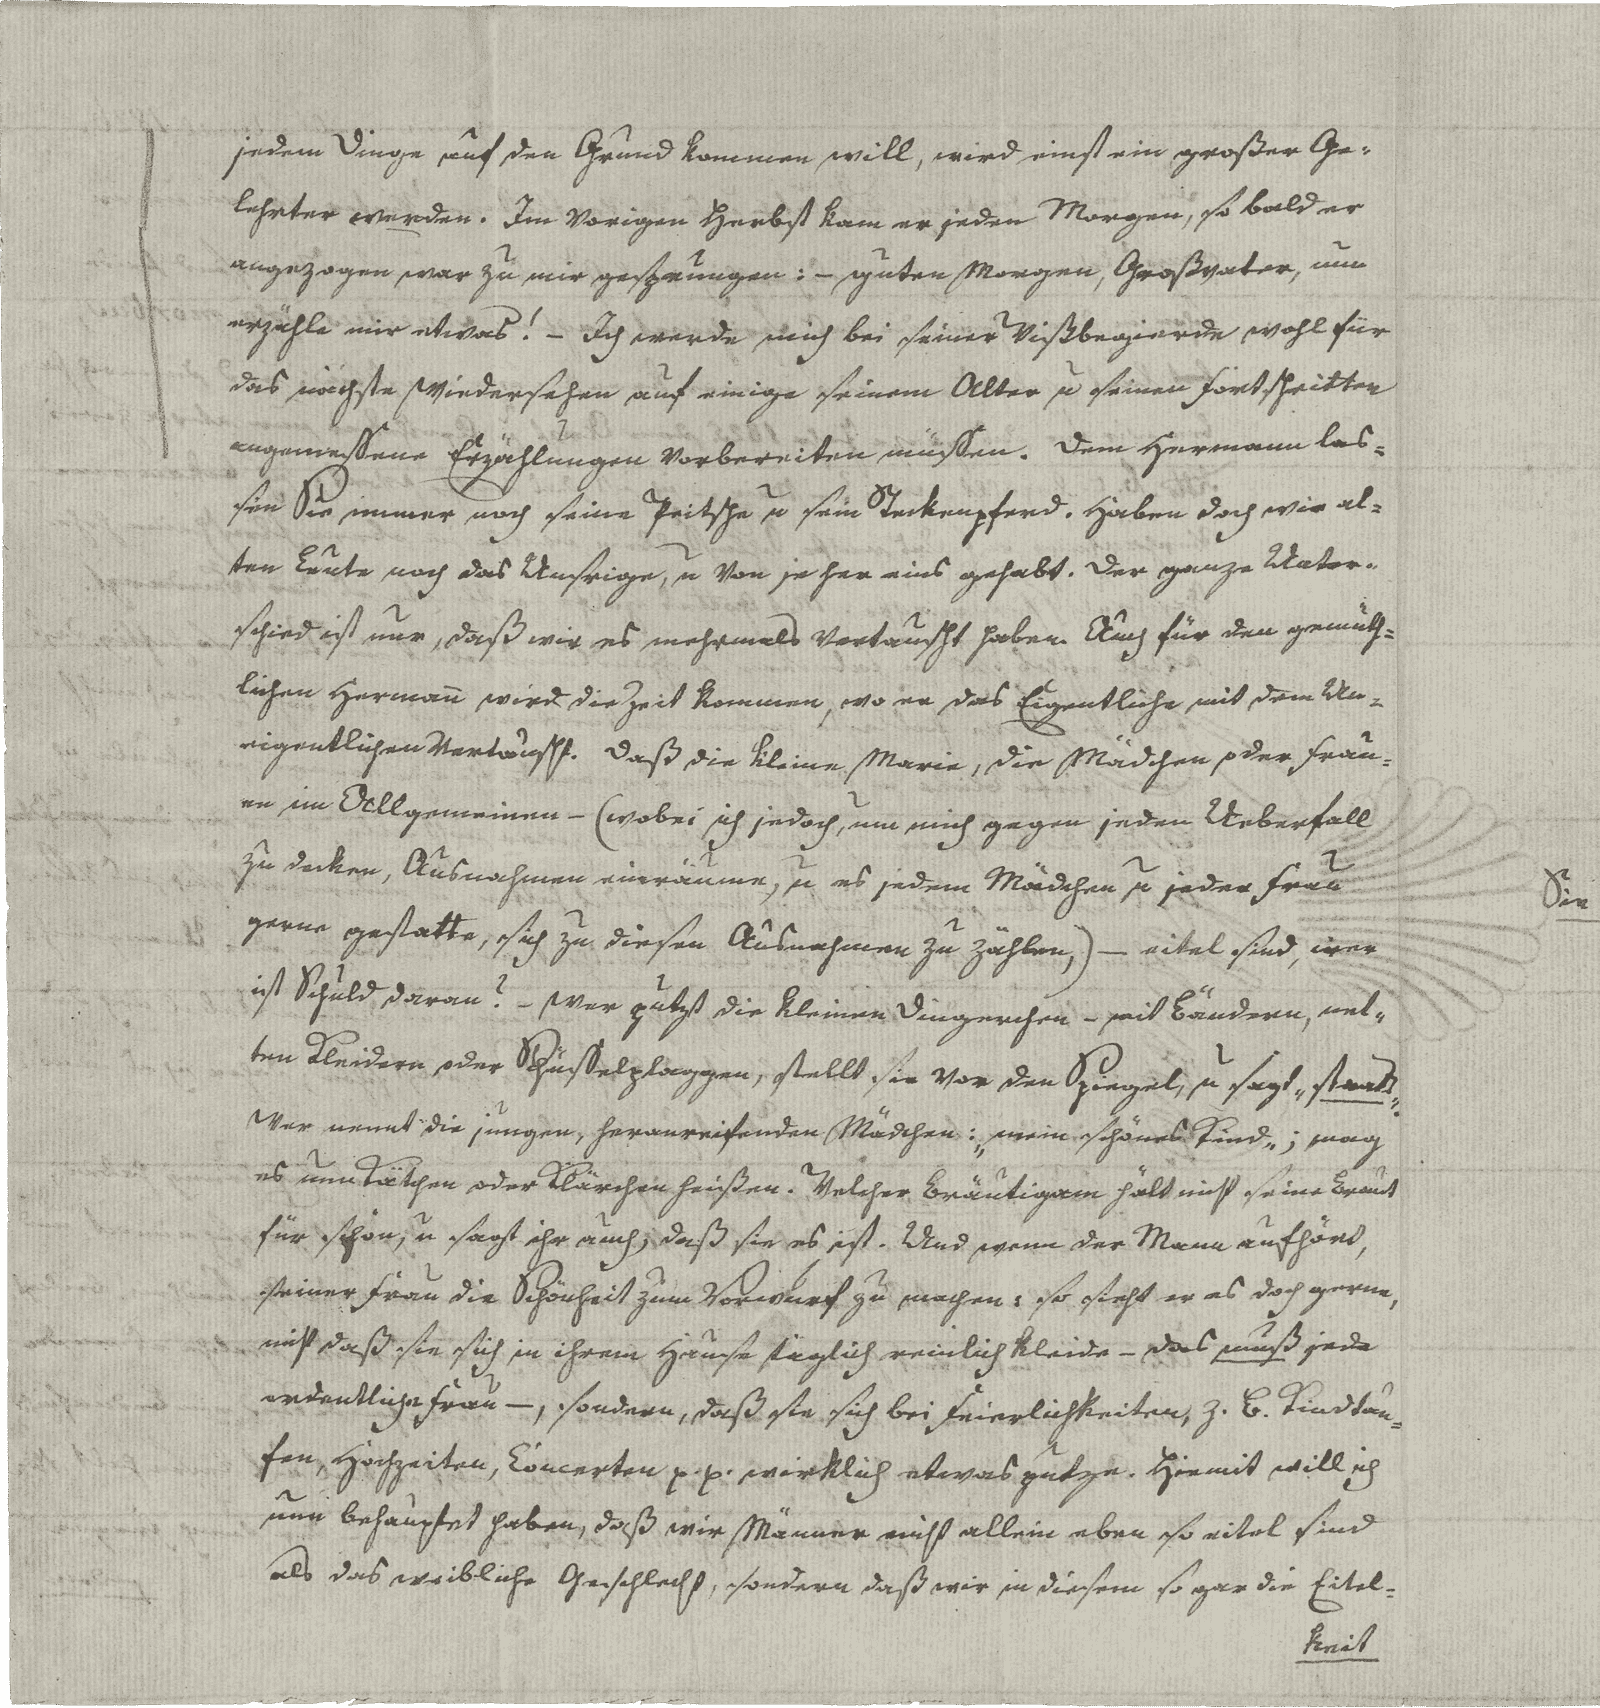 jedem Dinge auf den Grund kommen will, wird einst ein großer Ge-
lehrter werden. Im vorigen Herbst kam er jeden Morgen, so bald er
angezogen war zu mir gesprungen: – guten Morgen, Großvater, nun
erzähle mir etwas! – Ich werde mich bei seiner Wißbegierde wohl für
das nächste Wiedersehen auf einige seinem Alter u seinen Fortschritten
angemessene Erzählungen vorbereiten müssen. Dem Hermann las-
sen Sie immer noch seine Peitsche u sein Steckenpferd. Haben doch wir al-
ten Leute noch das Unsrige, u von je her eins gehabt. Der ganze Unter-
schied ist nur, daß wir es mehrmals vertauscht haben. Auch für den gemüth-
lichen Hermann wird die Zeit kommen, wo er das Eigentliche mit dem Un-
eigentlichen vertauscht. Daß die kleine Marie, die Mädchen oder Frau-
en im Allgemeinen – (wobei ich jedoch, um mich gegen jeden Ueberfall
zu decken, Ausnahmen einräume, u es jedem Mädchen u jeder Frau
gerne gestatte, sich zu diesen Ausnahmen zu zählen,) – eitel sind, wer
ist Schuld daran? – Wer putzt die kleinen Dingerchen – mit Bändern, net-
ten Kleidern oder Schüsselplaggen, stellt sie vor den Spiegel, u sagt „staats“.
Wer nennt die jungen, heranreifenden Mädchen: „mein schönes Kind„; mag
es nun Kätchen oder Klärchen heißen. Welcher Bräutigam hält nicht seine Braut
für schön, u sagt ihr auch, daß sie es ist. Und wenn der Mann aufhört,
seiner Frau die Schönheit zum Vorwurf zu machen: so sieht er es doch gerne,
nicht daß sie sich in ihrem Hause täglich reinlich kleide – das muß jede
ordentliche Frau –, sondern, daß sie sich bei Feierlichkeiten, z. B. Kindtau-
fen, Hochzeiten, Concerten p. p. wirklich etwas putze. Hiemit will ich
nun behauptet haben, daß wir Männer nicht allein eben so eitel sind
als das weibliche Geschlecht, sondern daß wir in diesem so gar die Eitel-
keit
Sie